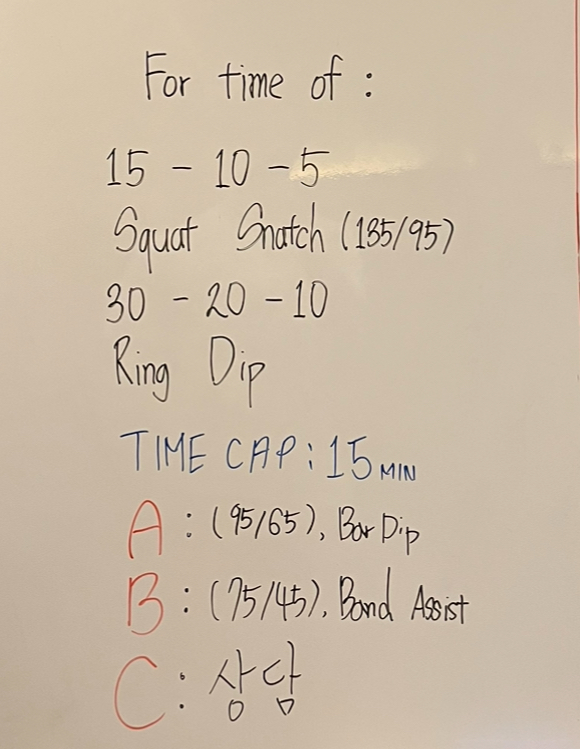 For time of :
15 - 10 - 5
Squat Snatch (135/95)
30 - 20 - 10
Ring Dip
TIME CAP : 15 MIN
A : (95/65), Bar Dip
B : (75/45), Band Assist
C : 상담